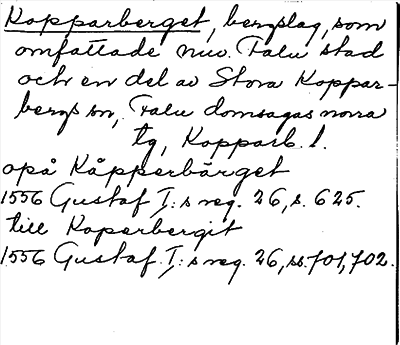 Kopparberget, bergslag, som
omfattade nuv. Falu stad
och en del av Stora Koppar-
bergs sn, Falu domsagas norra
tg, Kopparb. l.
opå Kåpperbärget
1556 Gustaf I:s reg. 26, s. 625.
till Koperbergit
1556 Gustaf I:s reg. 26, ss. 701, 702.